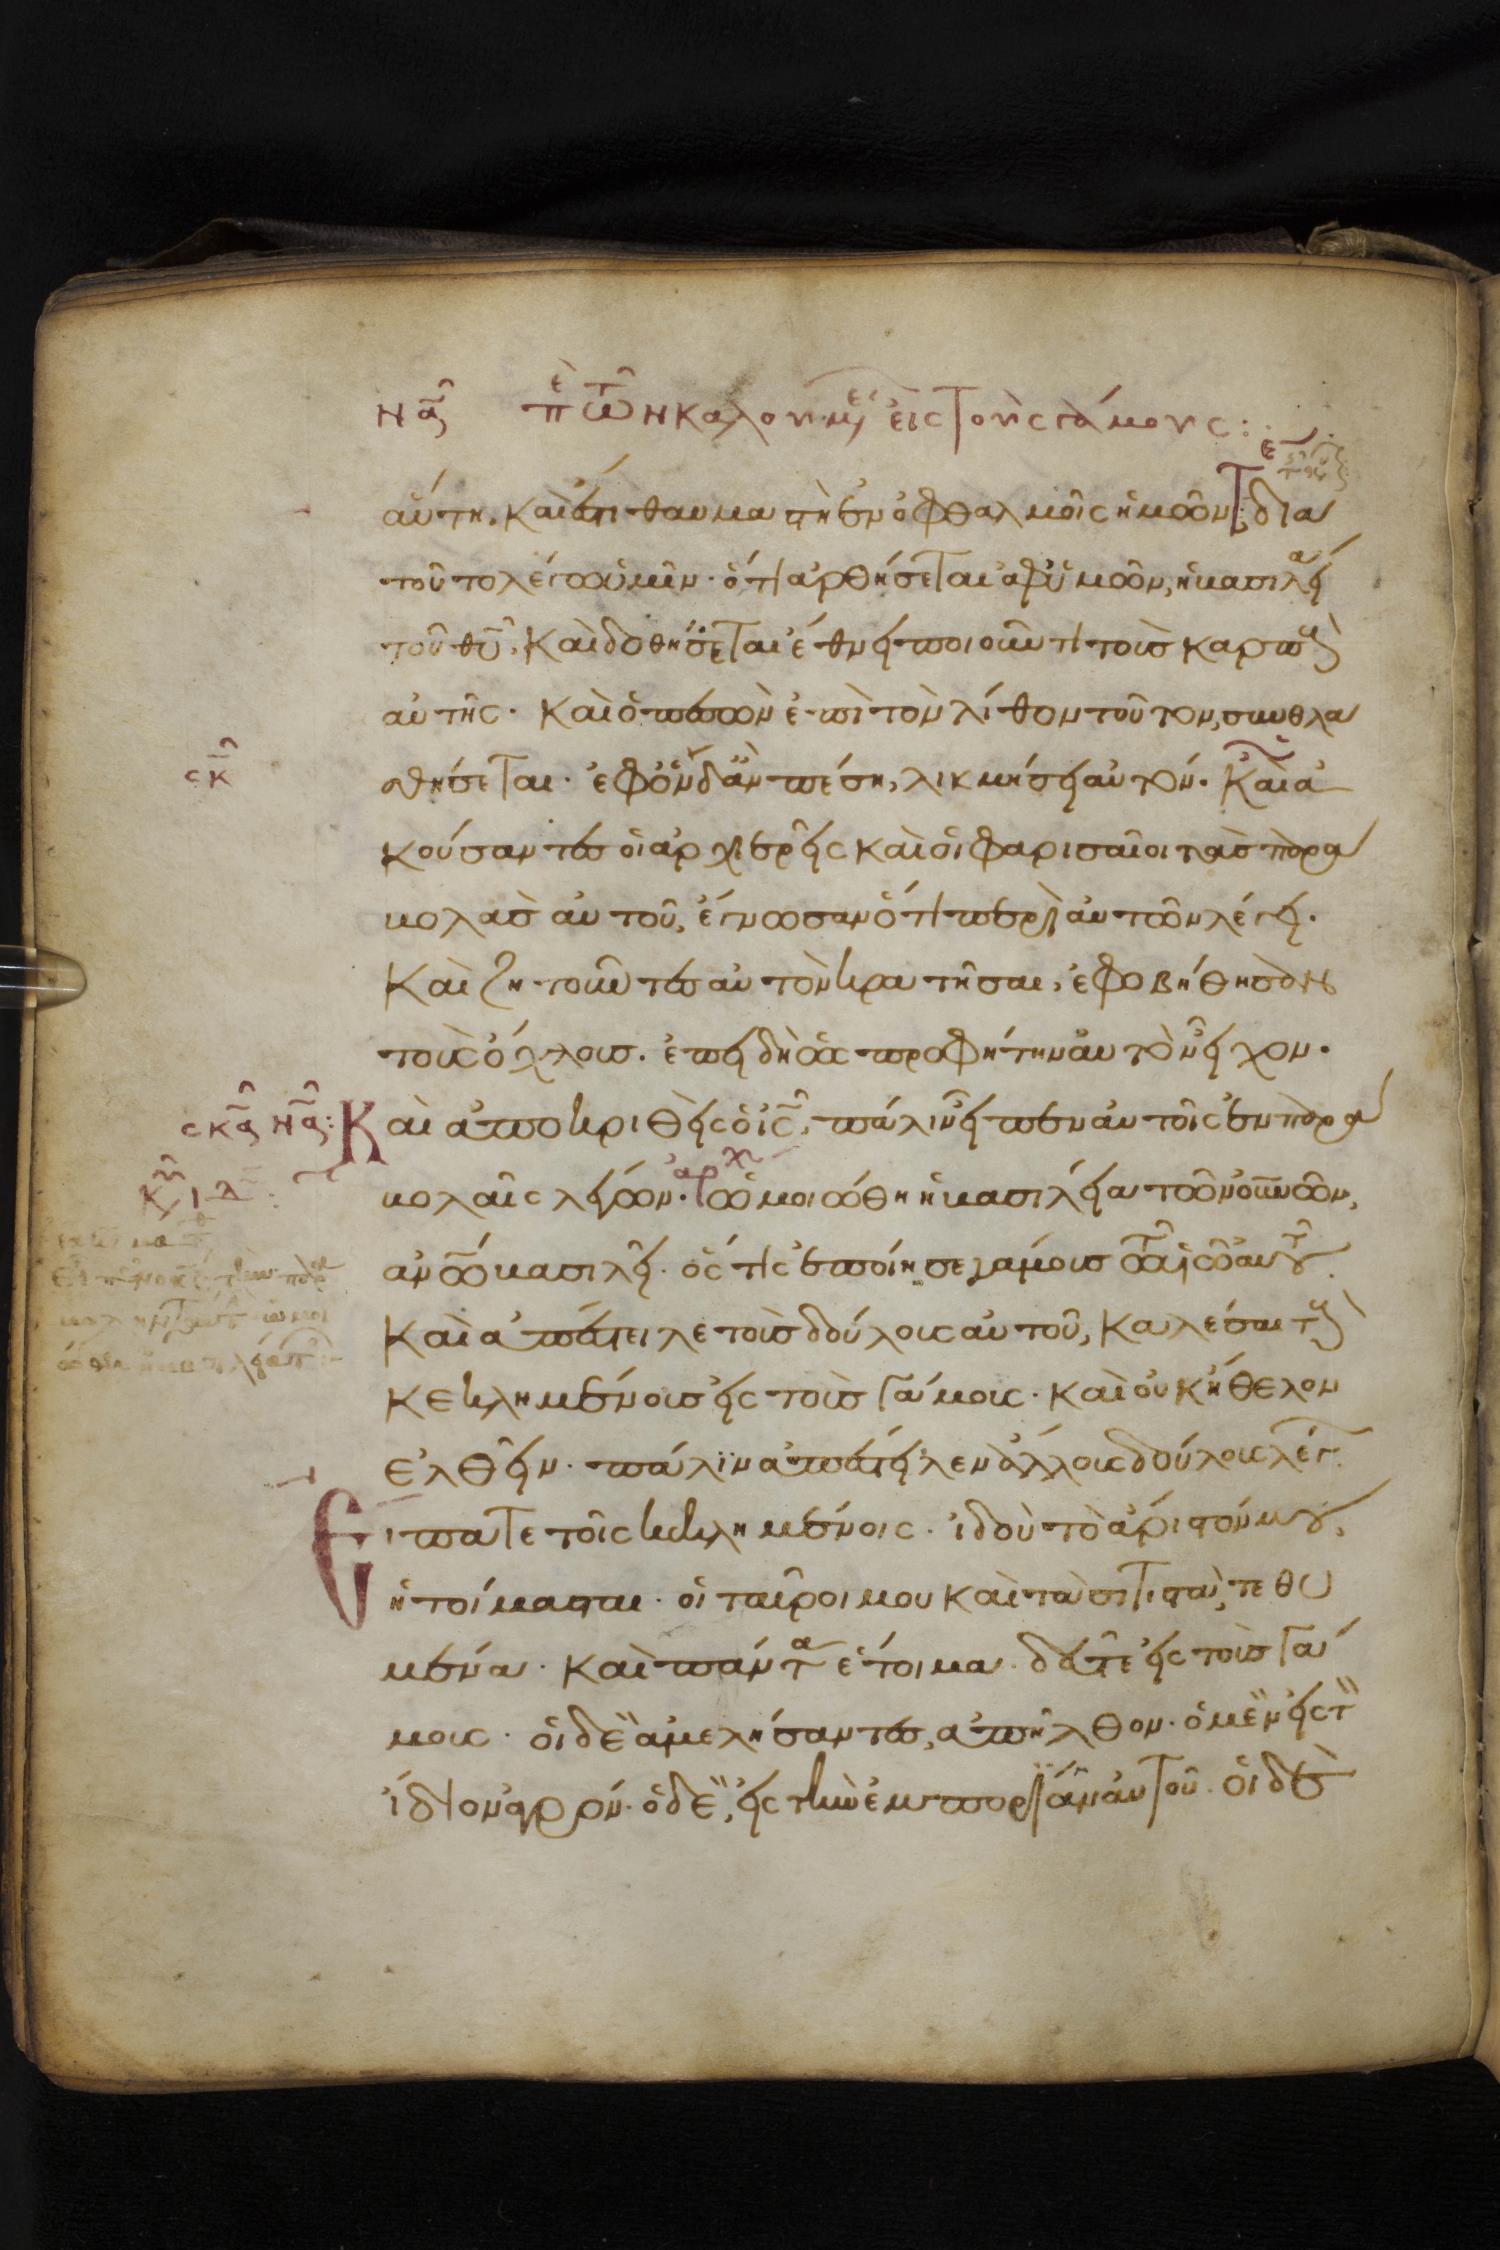 να περὶ τῶν καλουμένων εἰς τοὺς γάμους:
αὕτη, καὶ ἔστι θαυμαστὴ ἐν ὀφθαλμοῖς ἡμῶν; δια
τοῦτο λέγω ὑμῖν· ὅτι ἀρθήσεται ἀφ' ὑμῶν, ἡ βασιλεία
τοῦ θυ, καὶ δοθήσεται ἔθνει ποιοῦντι τοὺς καρποὺς
αὐτῆς· καὶ ὁ πεσὼν ἐπὶ τὸν λίθον τοῦτον, συνθλα
σκ
σθήσεται· ἐφ' ὃν δ' ἂν πέση, λικμήσει αὐτόν· Καὶ ἀ
κούσαντες οἱ ἀρχιερεῖς καὶ οἱ φαρισαῖοι τὰς παρα
βολὰς αὐτοῦ, ἔγνωσαν ὅτι περὶ αὐτῶν λέγει·
Καὶ ζητοῦντες αὐτὸν κρατῆσαι, ἐφοβήθησαν
τοὺς ὄχλους· ἐπειδὴ ὡς προφήτην αὐτὸν εἶχον·
σκα να: Καὶ ἀποκριθεὶς ὁ ις, πάλιν εἶπεν αὐτοῖς ἐν παρα
βολαῖς λέγων· ἀρχ ὡμοιώθη ἡ βασιλεία τῶν οὐνῶν,
ανω βασιλεῖ· ὅς τις ἐποίησε γάμους τῶ υἱῶ αὐτοῦ
Καὶ ἀπέστειλε τοὺς δούλους αὐτοῦ, καλέσαι τοὺς
κεκλημένους εἰς τοὺς γάμους· καὶ οὐκ ἤθελον
ἐλθεῖν· πάλιν ἀπέστειλεν ἄλλους δούλους λέγ
Εἴπατε τοῖς κεκλημένοις· ἰδοὺ τὸ ἄριστόν μου,
ἡτοίμασται· οἱ ταῦροι μου καὶ τὰ σιτιστὰ, τεθυ
μένα· καὶ πάντα ἕτοιμα· δεῦτε εἰς τοὺς γά
μους· οἱ δὲ ἀμελήσαντες, ἀπῆλθον· ὁ μὲν εἰς τ
ἴδιον ἀγρόν· ὁ δὲ, εἰς τὴν ἐμπορίαν αὐτοῦ· οἱ δὲ